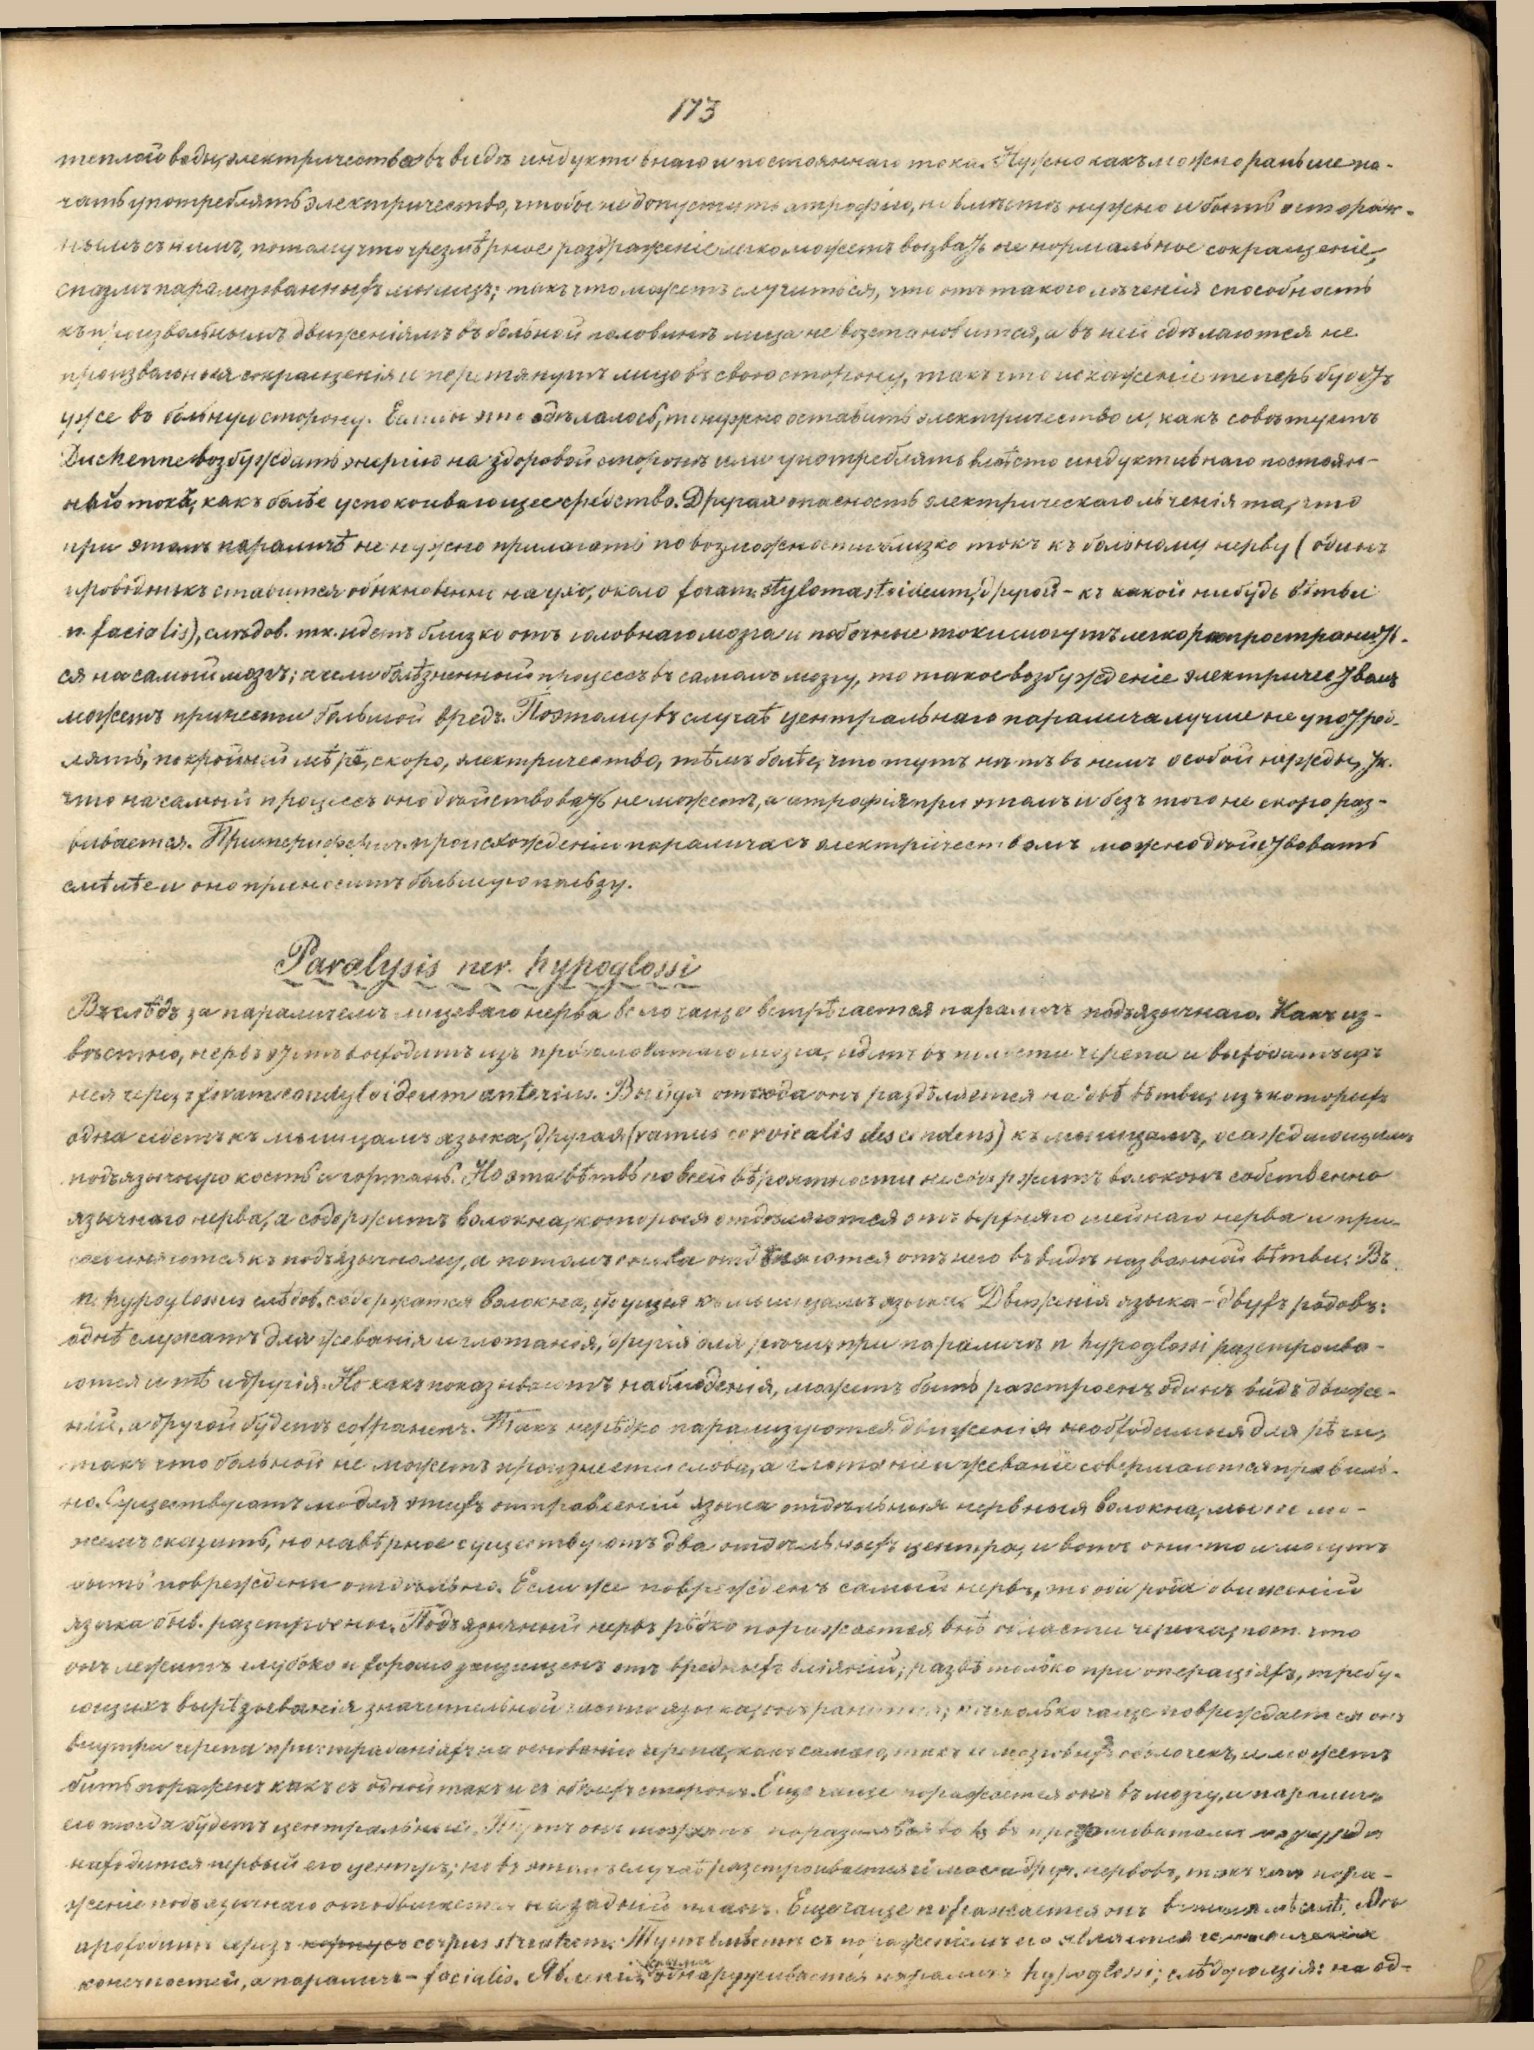 173
теплой воды, электричества въ видѣ индуктивнаго и постояннаго тока. Нужно какъ можно раньше на-
чать употреблять электричество, чтобы не допустить атрофію, но вмѣстѣ нужно и быть осторож-
нымъ съ нимъ, потому что чрезмѣрное раздраженіе легко можетъ вызвать не нормальное сокращеніе,
спазмъ парализованныхъ мышцъ; такъ что можетъ случиться, что отъ такого лѣченія способность
къ произвольнымъ движеніямъ въ больной половинѣ лица не возстановится, а въ ней сдѣлаются не
произвольныя сокращенія и перетянутъ лицо въ свою сторону, такъ что искаженіе теперь будетъ
уже въ больную сторону. Если это сдѣлалось, то нужно оставить электричество и, какъ совѣтуетъ
Duchenne возбуждать энергію на здоровой сторонѣ или употреблять вмѣсто индуктивнаго постоян-
наго тока, какъ болѣе успокоивающее средство. Другая опасность электрическаго лѣченія та, что
при этомъ параличѣ не нужно прилагать по возможности близко токъ къ больному нерву (одинъ
проводникъ ставится обыкновенно на ухо, около foram. stylomastoideum, другой - къ какой нибудь вѣтви
n. facialis), слѣдов. тк. идетъ близко отъ головнаго мозга и побочные токи могутъ легко распространить-
ся на самый мозгъ; а если болѣзненный процессъ въ самомъ мозгу, то такое возбужденіе электричествомъ
можетъ принести большой вредъ. Поэтому въ случаѣ центральнаго паралича лучше не употреб-
лять, по крайней мѣрѣ, скоро, электричество, тѣмъ болѣе, что тутъ нѣтъ въ немъ особой нужды, тк.
что на самый процессъ оно дѣйствовать не можетъ, а атрофія при этомъ и безъ того не скоро раз-
вивается. При периферич. происхожденіи паралича съ электричествомъ можно дѣйствовать
смѣлѣе и оно приноситъ большую пользу.
Paralysis ner. hypoglossi
Вслѣдъ за параличемъ лицеваго нерва всего чаще встрѣчается параличъ подъязычнаго. Какъ из-
вѣстно, нервъ этотъ выходитъ изъ продолговатаго мозга, идетъ въ полости черепа и выходитъ изъ
нея черезъ foram. condyloideum anterius. Выйдя отсюда онъ раздѣляется на двѣ вѣтви, изъ которыхъ
одна идетъ къ мышцамъ языка, другая (ramus cervicalis descendens) къ мышцамъ, осаждающимъ
подъязычную кость и гортань. Но эта вѣтвь по всей вѣроятности не содержитъ волоконъ собственно
язычнаго нерва, а содержитъ волокна, которыя отдѣляются отъ верхняго шейнаго нерва и при-
соединяются къ подъязычному, а потомъ снова отдѣляются отъ него въ видѣ названной вѣтви. Въ
n. hypoglossus слѣдов. содержатся волокна, идущія къ мышцамъ языка. Движенія языка - двухъ родовъ:
однѣ служатъ для жеванія и глотанія, другія для рѣчи; при параличѣ n hypoglossi разстроива-
ются и тѣ и другія. Но какъ показываютъ наблюденія, можетъ быть разстроенъ одинъ видъ движе-
ній, а другой будетъ сохраненъ. Такъ нерѣдко парализуются движенія необходимыя для рѣчи,
такъ что больной не можетъ произнести слова, а глотаніе и жеваніе совершаются правиль-
но. Существуютъ ли для этихъ отправленій языка отдѣльныя нервныя волокна, мы не мо-
жемъ сказать, но навѣрное существуютъ два отдѣльныхъ центра, и вотъ они-то и могутъ
быть повреждены отдѣльно. Если же поврежденъ самый нервъ, то оба рода движеній
языка быв. разстроены. Подъязычный нервъ рѣдко поражается внѣ области черепа, пот. что
онъ лежитъ глубоко и хорошо защищенъ отъ вредныхъ вліяній; развѣ только при операціяхъ, требу-
ющихъ вырѣзыванія значительной части языка, онъ ранится; нѣсколько чаще повреждается онъ
внутри черепа при страданіяхъ на основаніи черепа, какъ самого, такъ и мозговыхъ оболочекъ, и можетъ
быть пораженъ какъ съ одной такъ и съ обѣихъ сторонъ. Еще чаще поражается онъ въ мозгу, и параличъ
его тогда будетъ центральный. Тутъ онъ можетъ
находится первый его центръ; но въ этомъ случаѣ разстроивается и масса друг. нервовъ, такъ что пора-
женіе подъязычнаго отодвигается на задній планъ. Еще чаще поражается онъ
проходитъ черезъ corpus striatum. Тутъ вмѣстѣ съ пораженіемъ его является
конечностей, а параличъ - facialis. обнаруживается параличъ hypoglossi; слѣдующія: на од-